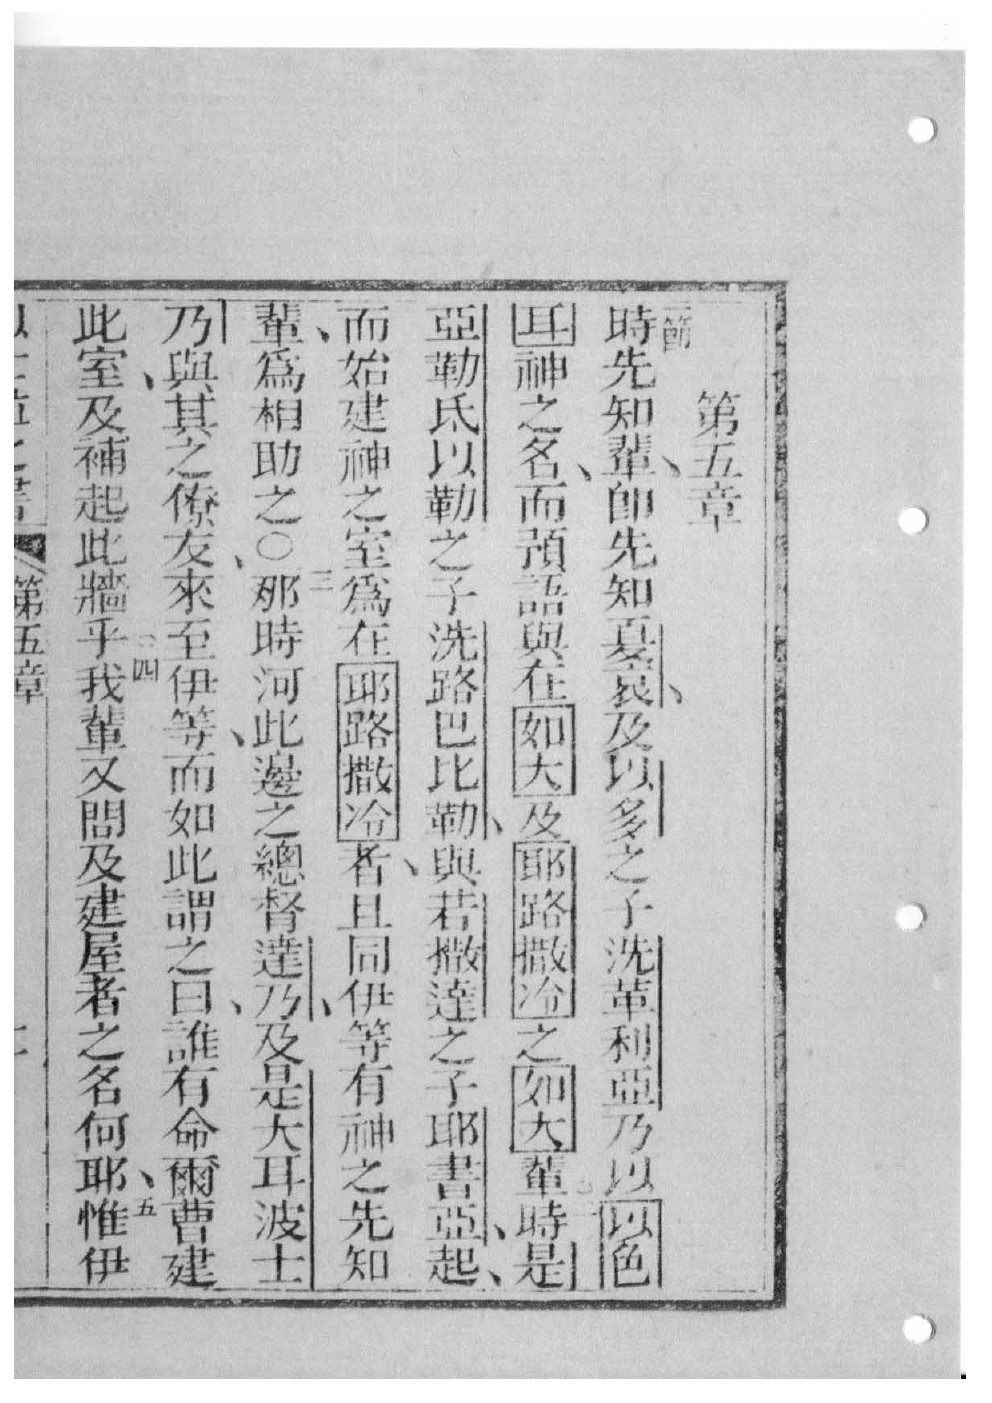 第五章
一節
時先知輩、卽先知夏哀、及以多之子洗革利亞乃以以色
耳神之名、而預語與在如大及耶路撒冷之如大輩時是
二
亞勒氐以勒之子洗路巴比勒、與若撒達之子耶書亞、起、
而始建神之室爲在耶路撒冷者、且同伊等有神之先知
輩、爲相助之○三那時河此邊之總督達乃、及是大耳波士
乃與其之僚友、來至伊等、而如此謂之曰、誰有命爾曹建
此室、及補起此牆乎四我輩又問及建屋者之名何耶、五惟伊
第五章